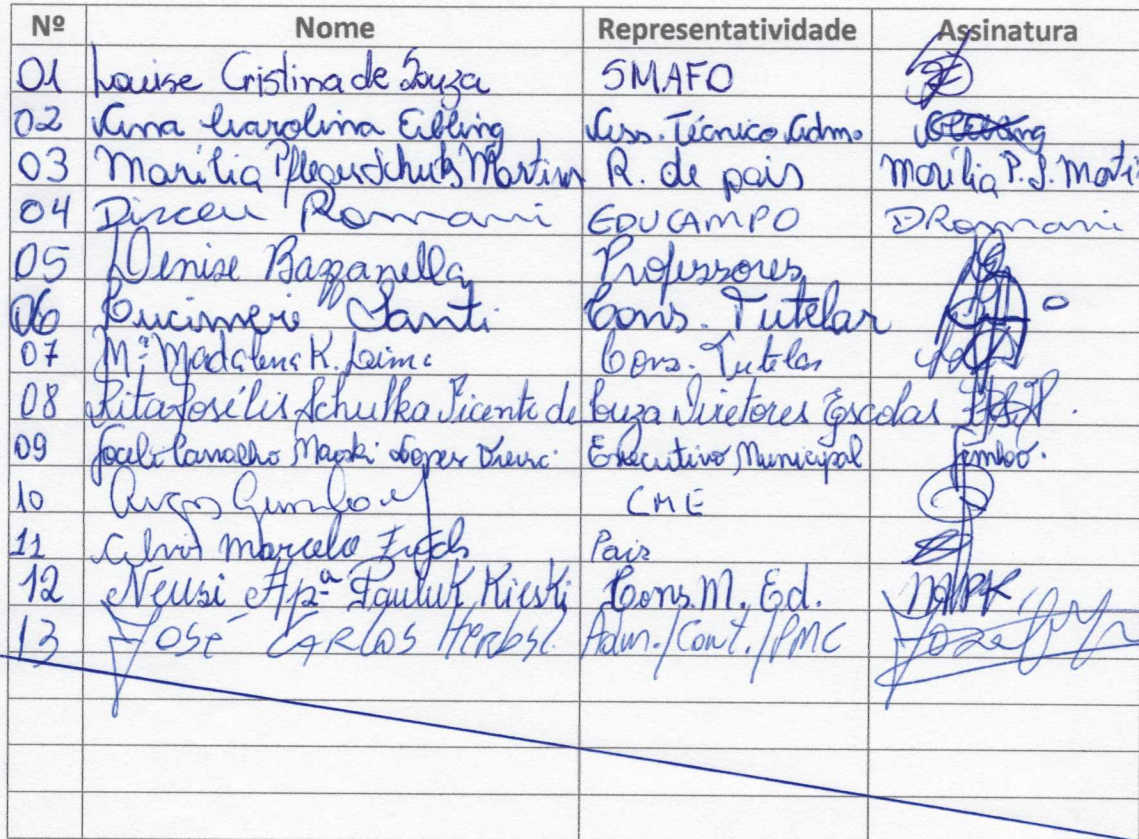 Nº Nome Representatividade Assinatura
01 Louise Cristina de Souza SMAFO
02 Anna Carolina Eibling Ass. Técnico Adm.
03 Marília Pfleger Schuts Martins R. de pais Marília P. S. Marti
04 Dirceu Romani EDUCAMPO DRomani
05 Denise Bazzanella Professores
06 Lucimeri Santi Cons. Tutelar
07 Mª Madalena K. Cons. Tutelar
08 Rita Josélis Schulka Vicente de Souza Diretores Escolas
09 Joceli Carvalho Lopes Executivo Municipal
10 CME
11 Marcelo Pais
12 Neusi Apª Pauluk Kieski Cons. M. Ed. NAPK
13 José Carlos Herbst Adm./Cont./PMC